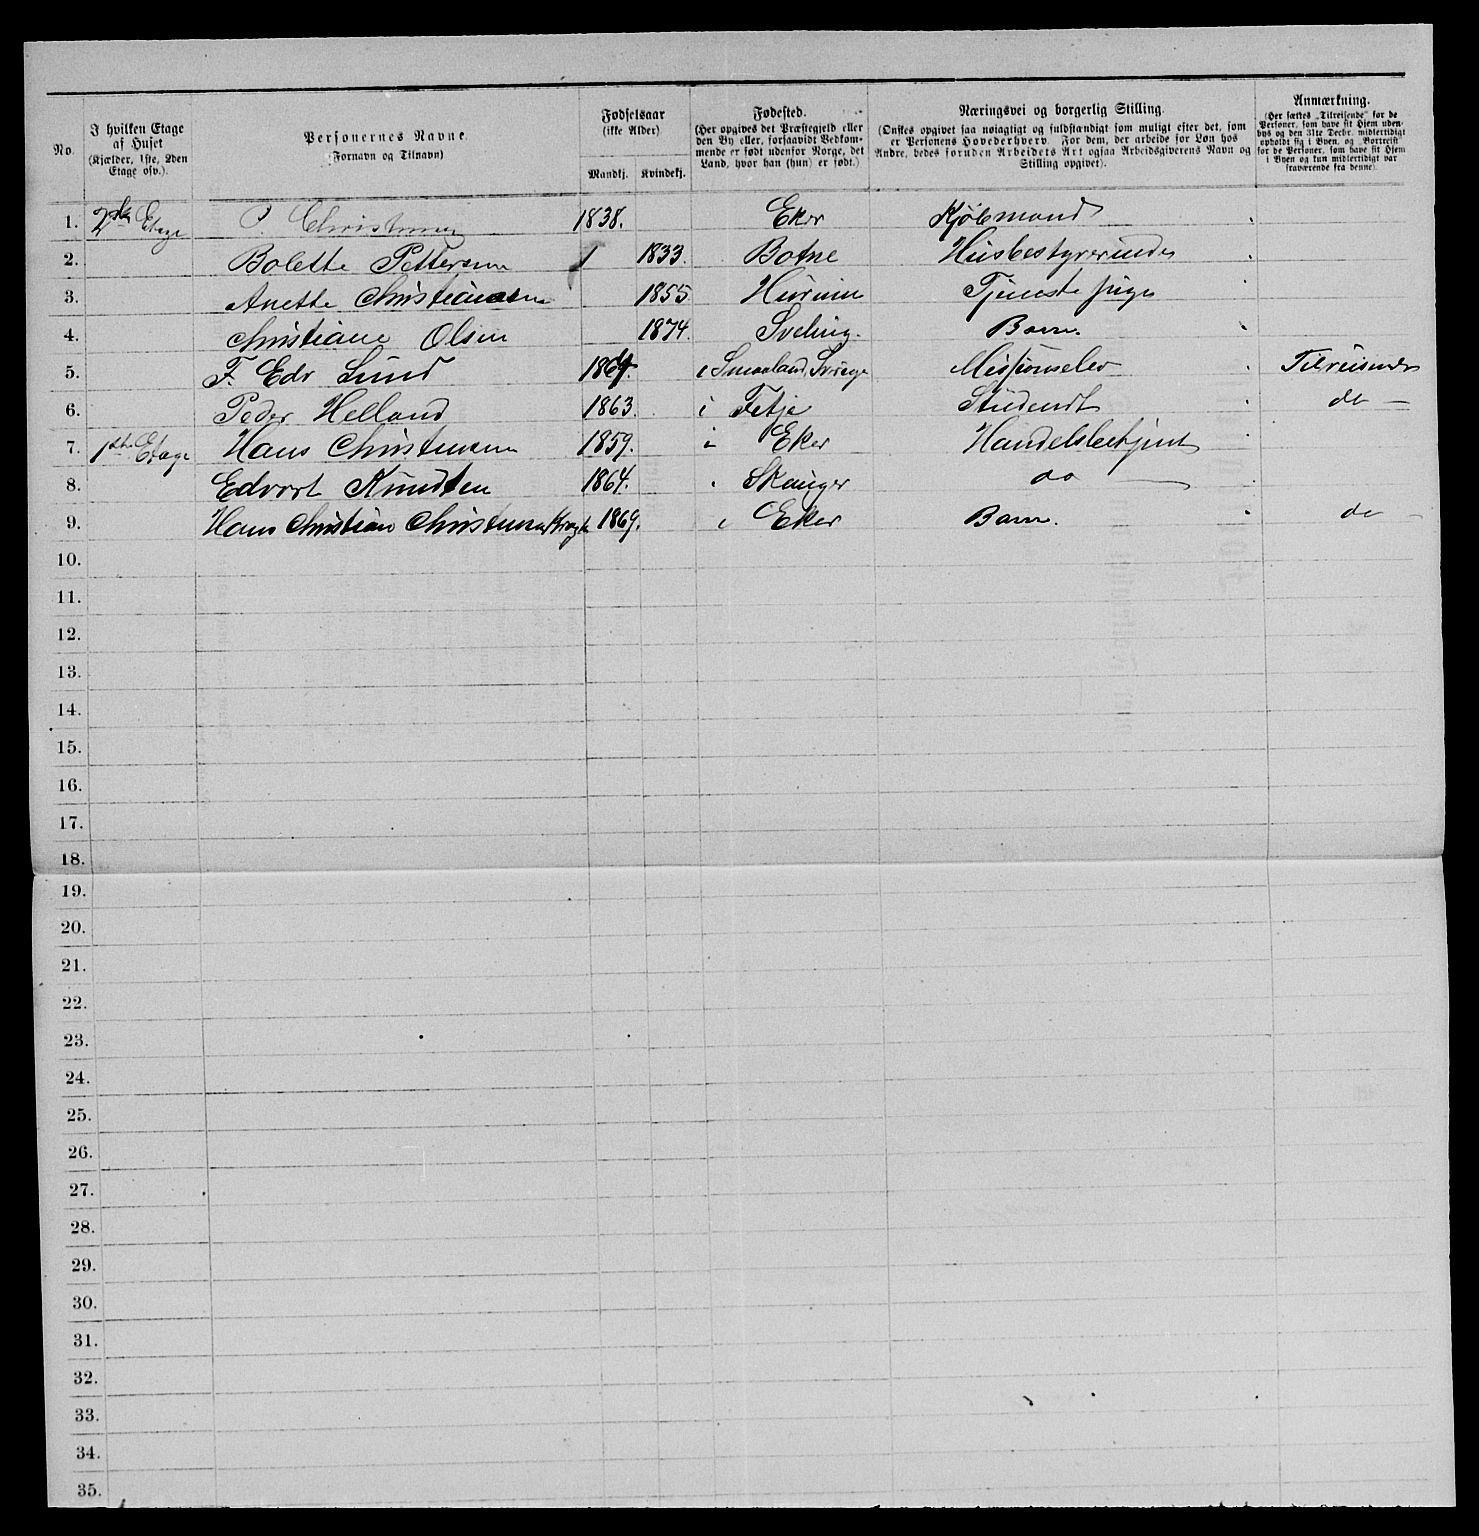 No.
I hvilken Etage af Huset (Kjælder, 1ste, 2den Etage osv.).
Personernes Navne. (Fornavn og Tilnavn)
Fødselsaar (ikke Alder) Mandkj. Kvindekj.
Fødested. (Her opgives det Præstegjeld eller den By eller, forsaavidt Vedkommende er født udenfor Norge, det Land, hvor han (hun) er født.)
Næringsvei og borgerlig Stilling. (Ønskes opgivet saa nøiagtigt og fuldstændigt som muligt efter det, som er Personens Hovederhverv. For dem, der arbeide for Løn hos Andre, bedes foruden Arbeidets Art ogsaa Arbeidsgiverens Navn og Stilling opgivet).
Anmærkning. (Her sættes „Tilreisende" for de Personer, som have sit Hjem udenbys og den 31te Decbr. midlertidigt opholdt sig i Byen, og „Bortreist" for de Personer, som have sit Hjem i Byen og kun midlertidigt var fraværende fra denne).
1. 2den Etage P. Christensen 1838. Eker Kjøbmand
2. Bolette Pettersen 1 1833. Botne Husbestyrerinde
3. Anette Christiansen 1855 Hurum Tjenestepige
4. Christiane Olsen 1874. Svelvig. Barn.
5. F. Edv Lund i Smaaland Sverige Missionselev Tilreisende
6. Peder Helland 1863. i Fetje Student do —
7. 1ste Etage Hans Christensen 1859. i Eker Handelsbetjent
8. Edvart Knudsen 1864. Skauger do
9. Hans Christian Christensen 1869. i Eker Barn. do —
10.
11.
12.
13.
14.
15.
16.
17.
18.
19.
20.
21.
22.
23.
24.
25.
26.
27.
28.
29.
30.
31.
32.
33.
34.
35.